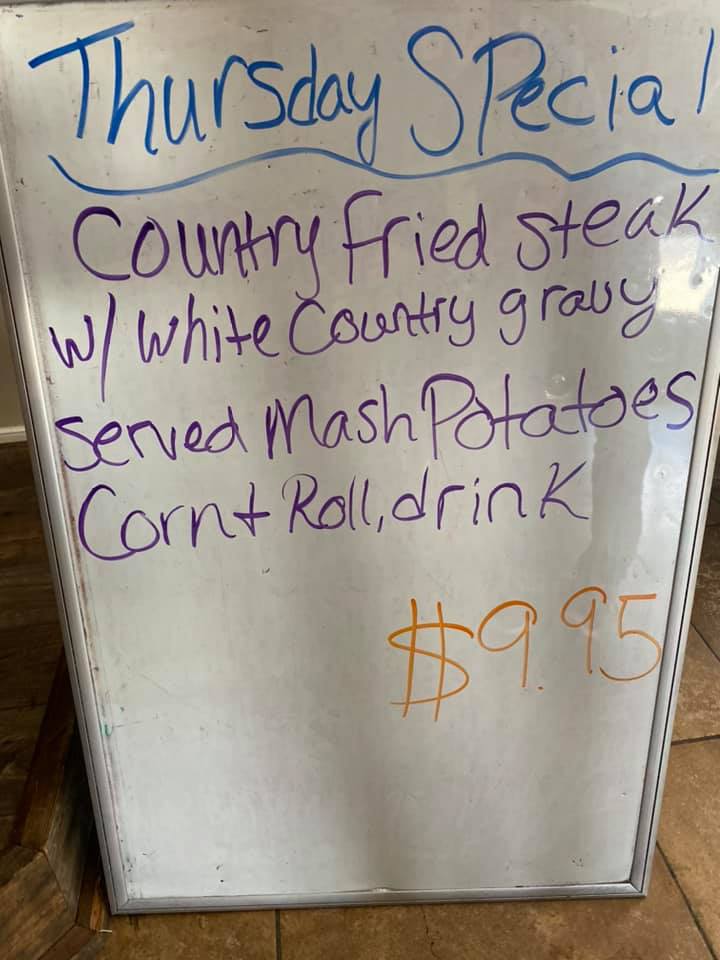 Thursday Special
Country fried steak
w/ white Country gravy
served Mash Potatoes
Corn + Roll, drink
$9.95